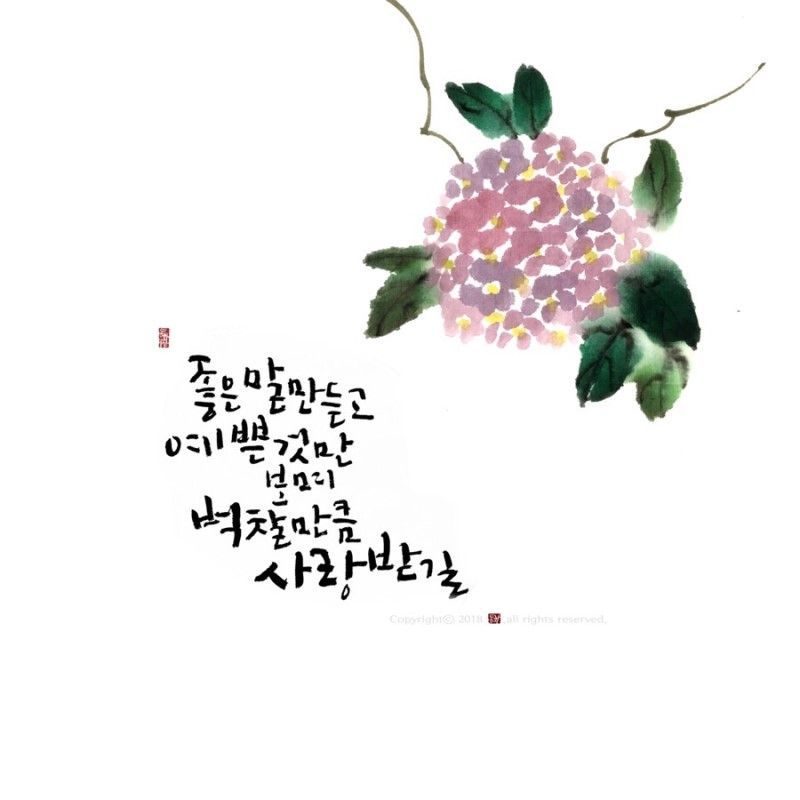 좋은 말만 듣고
예쁜 것만
보며
벅찰만큼
사랑받길
Copyrightⓒ 2018. .all rights reserved.